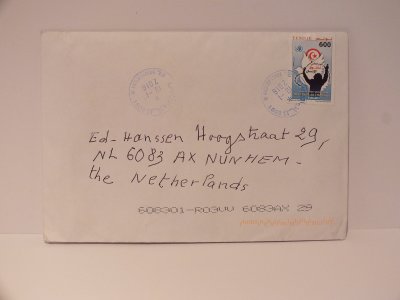 600
Ed-Hanssen Hoogstraat 29,
NL 6083 AX NUNHEM-
the Netherlands
608301-R03VV 6083AX 29